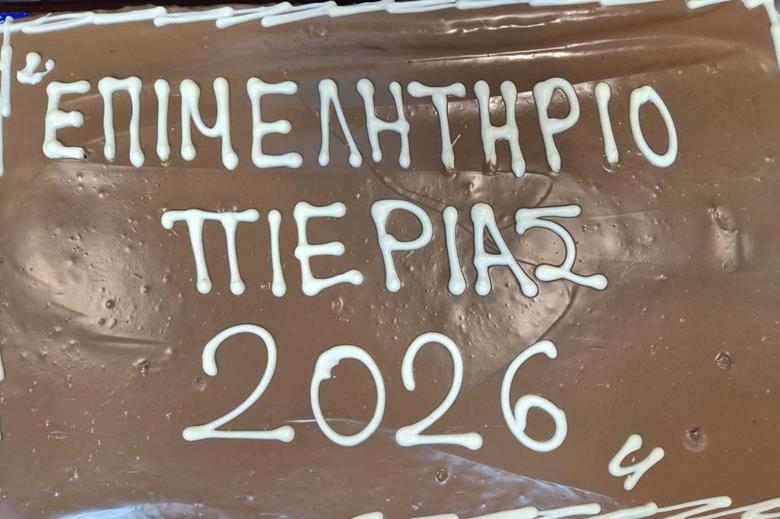 "ΕΠΙΜΕΛΗΤΗΡΙΟ
ΠΙΕΡΙΑΣ
2026"